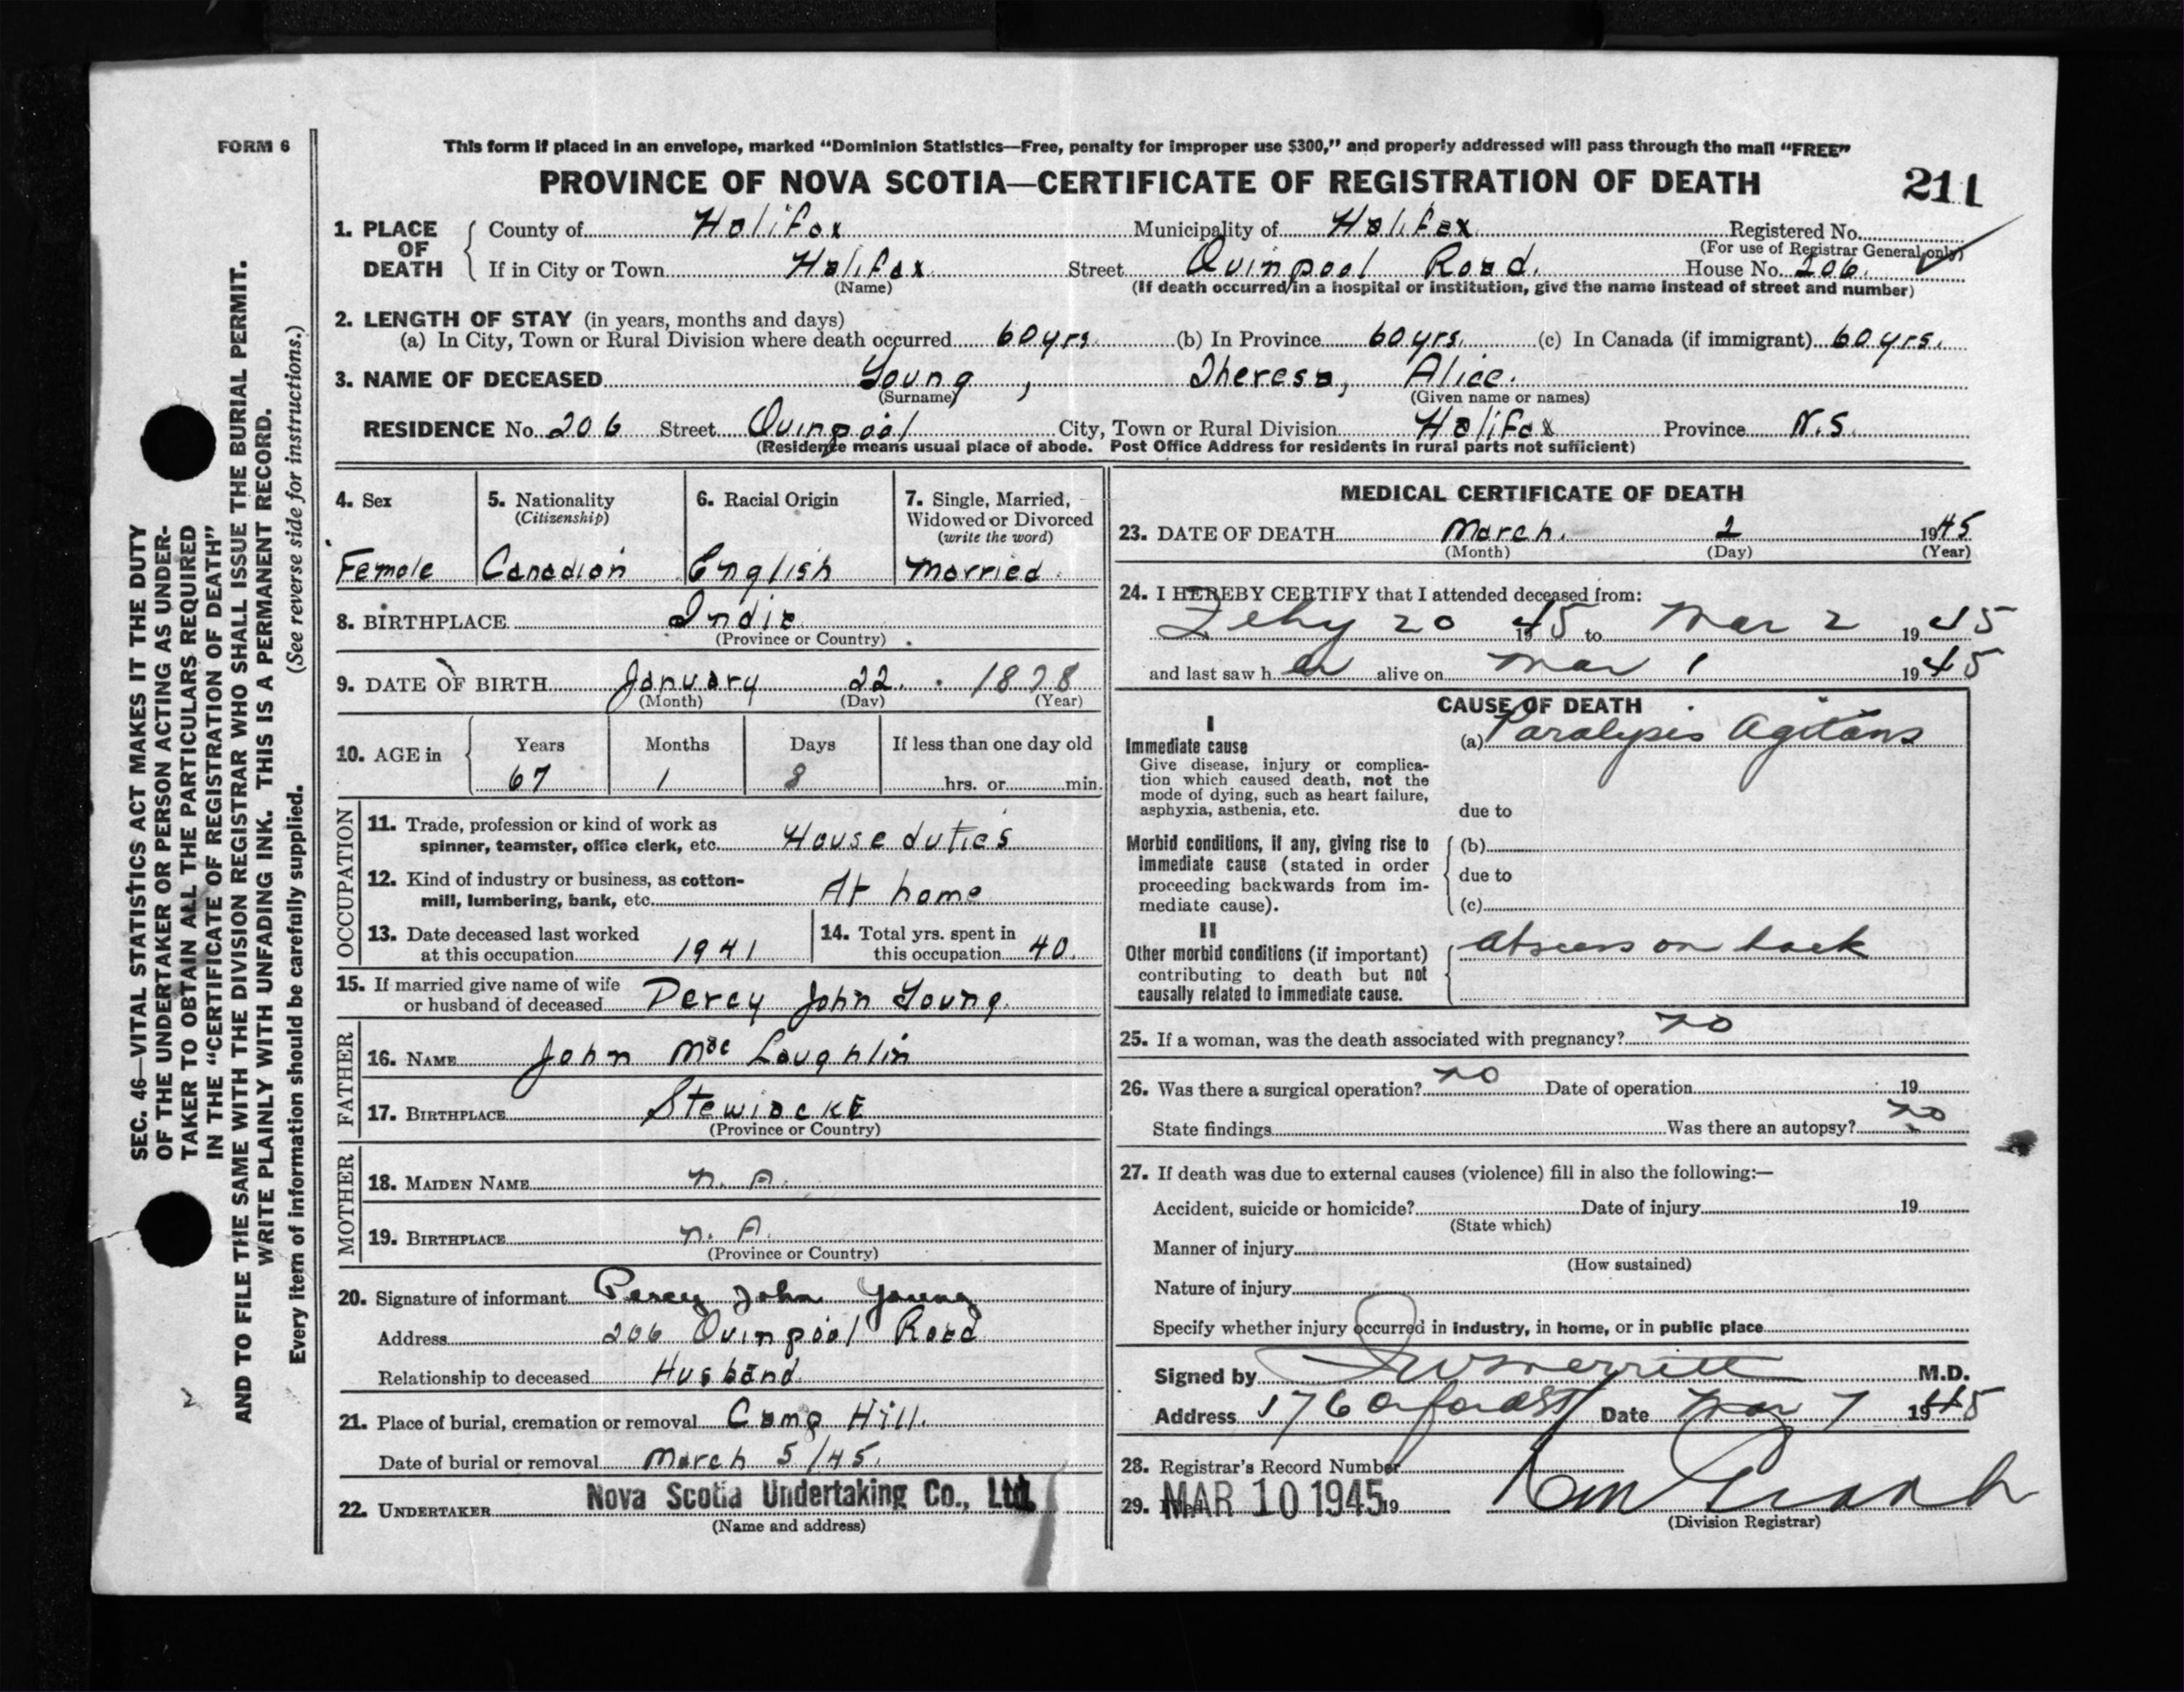 FORM 6
This form if placed in an envelope, marked “Dominion Statistics—Free, penalty for improper use $300,” and properly addressed will pass through the mail “FREE”
PROVINCE OF NOVA SCOTIA—CERTIFICATE OF REGISTRATION OF DEATH
211
1. PLACE OF DEATH
County of Halifax Municipality of Halifax Registered No.
(For use of Registrar General only)
If in City or Town Halifax Street Quinpool Road. House No. 206.
(Name) (If death occurred in a hospital or institution, give the name instead of street and number)
2. LENGTH OF STAY (in years, months and days)
(a) In City, Town or Rural Division where death occurred 60 yrs. (b) In Province 60 yrs. (c) In Canada (if immigrant) 60 yrs.
3. NAME OF DECEASED Young, Theresa, Alice.
(Surname) (Given name or names)
RESIDENCE No. 206 Street Quinpool City, Town or Rural Division Halifax Province N.S.
(Residence means usual place of abode. Post Office Address for residents in rural parts not sufficient)
4. Sex
Female
5. Nationality
(Citizenship)
Canadian
6. Racial Origin
English
7. Single, Married,
Widowed or Divorced
(write the word)
Married.
8. BIRTHPLACE India
(Province or Country)
9. DATE OF BIRTH January 22. 1878
(Month) (Day) (Year)
10. AGE in
Years Months Days If less than one day old
67 1 8 hrs. or min.
OCCUPATION
11. Trade, profession or kind of work as
spinner, teamster, office clerk, etc. House duties
12. Kind of industry or business, as cotton-
mill, lumbering, bank, etc. At home
13. Date deceased last worked
at this occupation 1941
14. Total yrs. spent in
this occupation 40.
15. If married give name of wife
or husband of deceased Percy John Young.
FATHER
16. NAME John MacLaughlin
17. BIRTHPLACE Stewiacke
(Province or Country)
MOTHER
18. MAIDEN NAME N. A.
19. BIRTHPLACE N. A.
(Province or Country)
20. Signature of informant Percy John Young
Address 206 Quinpool Road
Relationship to deceased Husband
21. Place of burial, cremation or removal Camp Hill.
Date of burial or removal March 5/45.
22. UNDERTAKER Nova Scotia Undertaking Co., Ltd.
(Name and address)
MEDICAL CERTIFICATE OF DEATH
23. DATE OF DEATH March. 2 1945
(Month) (Day) (Year)
24. I HEREBY CERTIFY that I attended deceased from:
Feby 20 1945 to Mar 2 1945
and last saw her alive on Mar 1 1945
CAUSE OF DEATH
I
Immediate cause
Give disease, injury or complica-
tion which caused death, not the
mode of dying, such as heart failure,
asphyxia, asthenia, etc.
(a) Paralysis Agitans
due to
Morbid conditions, if any, giving rise to
immediate cause (stated in order
proceeding backwards from im-
mediate cause).
(b)
due to
(c)
II
Other morbid conditions (if important)
contributing to death but not
causally related to immediate cause.
Abscess on back
25. If a woman, was the death associated with pregnancy? no
26. Was there a surgical operation? no Date of operation 19
State findings Was there an autopsy? no
27. If death was due to external causes (violence) fill in also the following:—
Accident, suicide or homicide? Date of injury 19
(State which)
Manner of injury
(How sustained)
Nature of injury
Specify whether injury occurred in industry, in home, or in public place
Signed by Merritt M.D.
Address 176 Oxford St Date Mar 7 1945
28. Registrar's Record Number
29. Filed MAR 10 1945 19
(Division Registrar)
SEC. 46—VITAL STATISTICS ACT MAKES IT THE DUTY
OF THE UNDERTAKER OR PERSON ACTING AS UNDER-
TAKER TO OBTAIN ALL THE PARTICULARS REQUIRED
IN THE “CERTIFICATE OF REGISTRATION OF DEATH”
AND TO FILE THE SAME WITH THE DIVISION REGISTRAR WHO SHALL ISSUE THE BURIAL PERMIT.
WRITE PLAINLY WITH UNFADING INK. THIS IS A PERMANENT RECORD.
Every item of information should be carefully supplied. (See reverse side for instructions.)